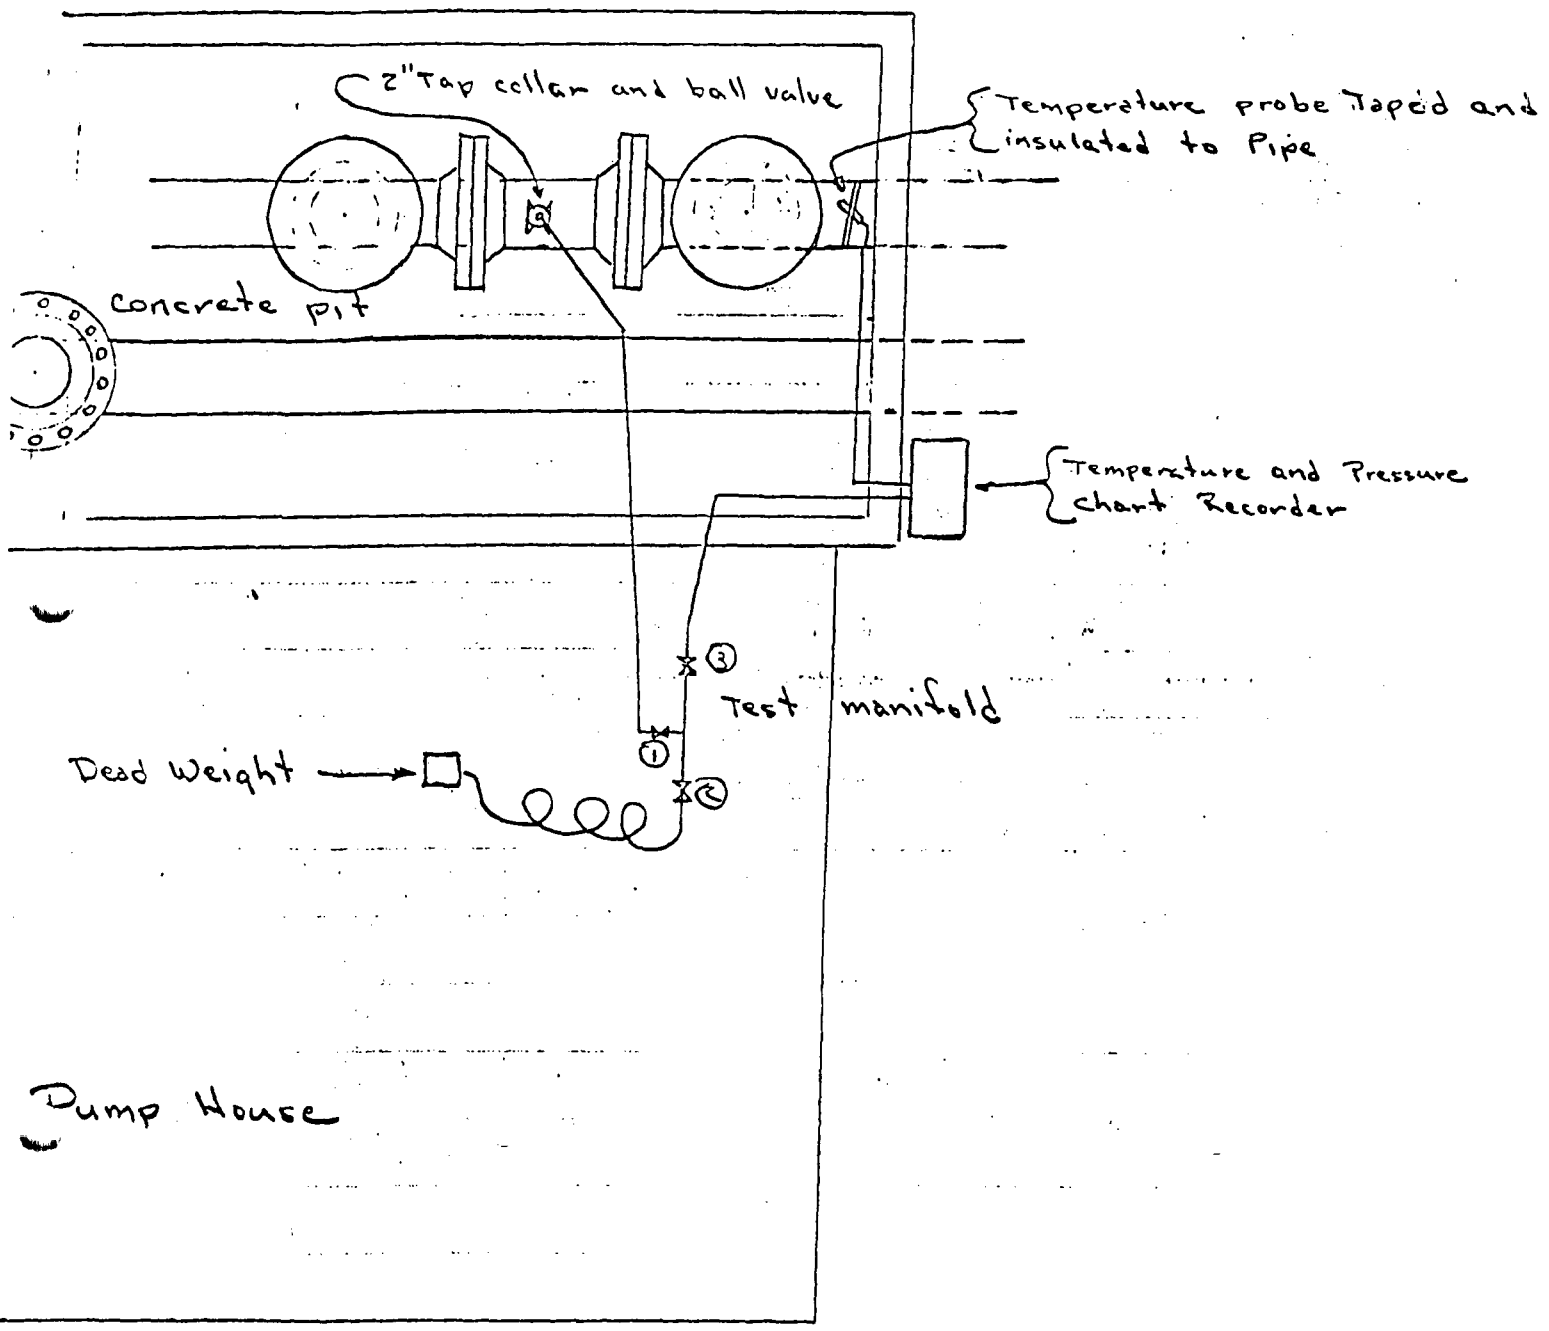 2" Tap collar and ball valve
Temperature probe Taped and
insulated to Pipe
concrete pit
Temperature and Pressure
chart Recorder
3
Test manifold
1
Dead Weight
2
Pump House